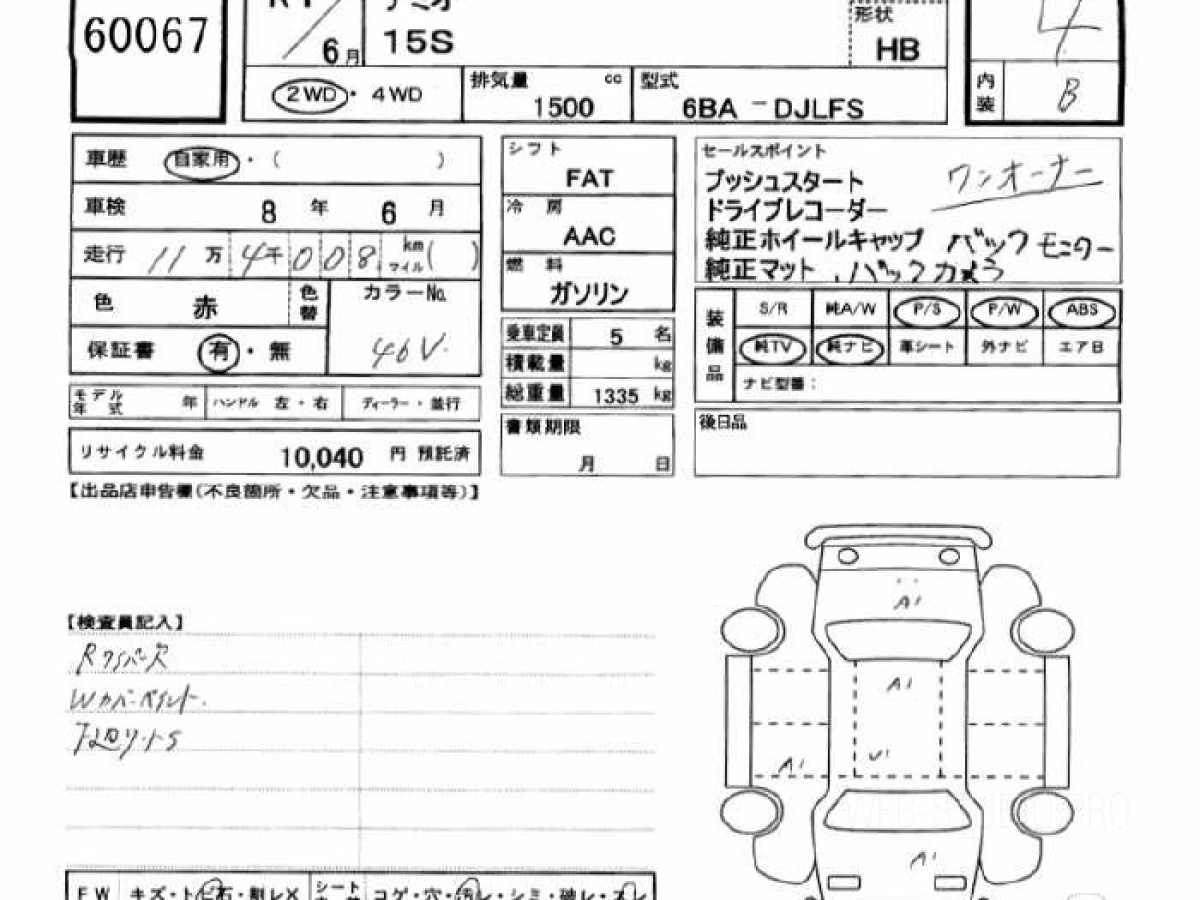 60067
6月
15S
形状
HB
4
2WD・4WD
排気量 cc
1500
型式
6BA -DJLFS
内装 B
車歴 自家用・( )
車検 8 年 6 月
走行 11万4千008 km マイル( )
色 赤 色替
カラーNo.
46V
保証書 有・無
モデル年式 年 ハンドル 左・右 ディーラー・並行
リサイクル料金 10,040 円 預託済
シフト
FAT
冷房
AAC
燃料
ガソリン
乗車定員 5 名
積載量 kg
総重量 1335 kg
書類期限
月 日
セールスポイント
プッシュスタート ワンオーナー
ドライブレコーダー
純正ホイールキャップ バックモニター
純正マット バックカメラ
装備品
S/R 純A/W P/S P/W ABS
純TV 純ナビ 革シート 外ナビ エアB
ナビ型番:
後日品
【出品店申告欄(不良箇所・欠品・注意事項等)】
【検査員記入】
Rワイパー欠
Wカバーペイント.
下廻りサS
A1
A1
A1
U1
A1
WEB-S
PRO
FW キズ・トビ石・割レX シート コゲ・穴・汚レ・シミ・破レ・スレ